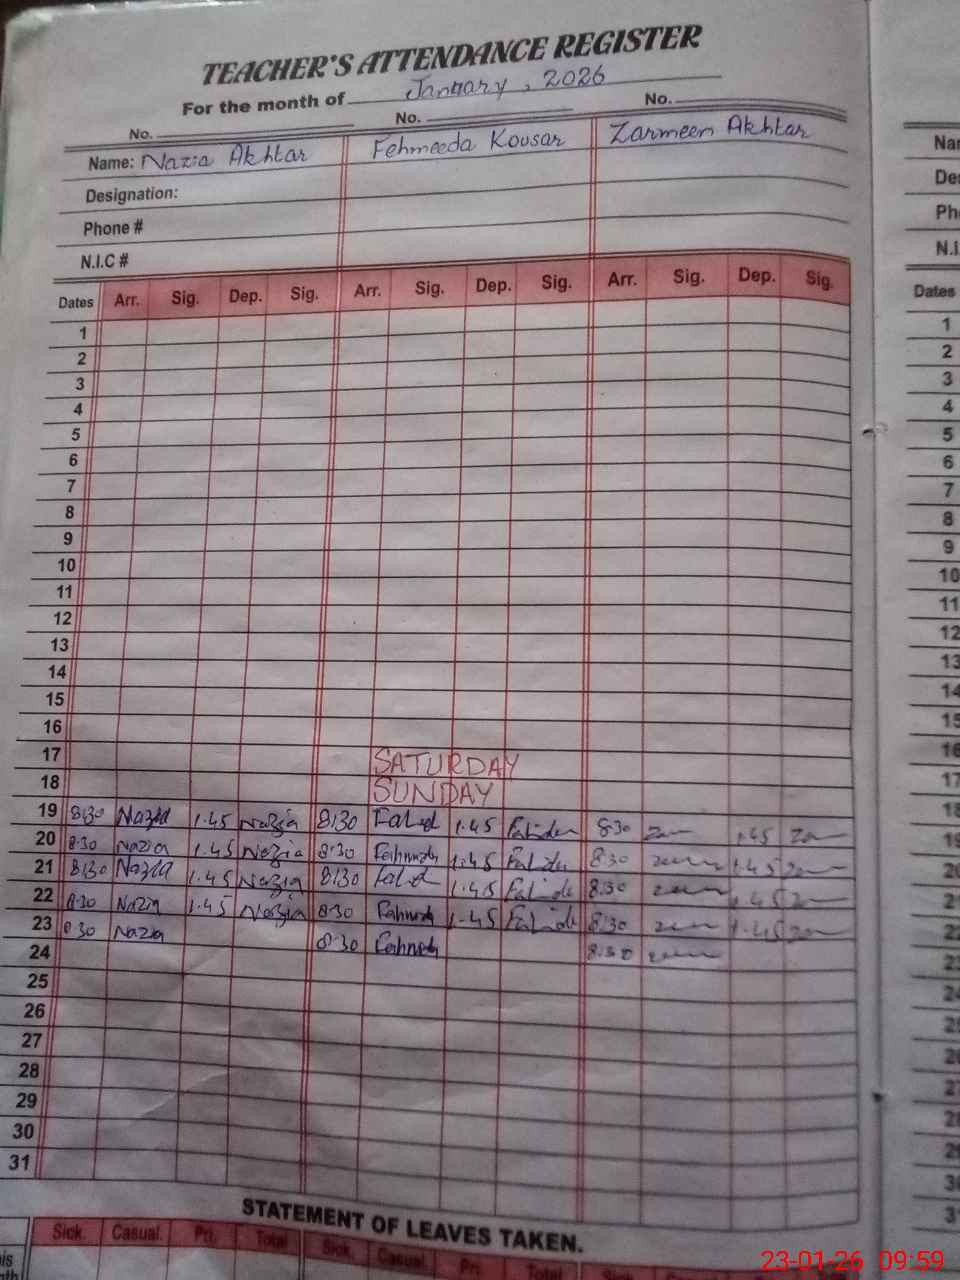 TEACHER'S ATTENDANCE REGISTER
For the month of January, 2026
No. No. No.
Name: Nazia Akhtar Fehmeeda Kousar Zarmeen Akhtar
Designation:
Phone #
N.I.C #
Dates Arr. Sig. Dep. Sig. Arr. Sig. Dep. Sig. Arr. Sig. Dep. Sig.
1
2
3
4
5
6
7
8
9
10
11
12
13
14
15
16
17 SATURDAY
18 SUNDAY
19 8:30 Nazia 1.45 Nazia 8:30 1.45 8:30 1.45
20 8:30 Nazia 1.45 Nazia 8:30 1.45 8:30 1.45
21 8:30 Nazia 1.45 Nazia 8:30 1.45 8:30 1.45
22 8:30 Nazia 1.45 Nazia 8:30 1.45 8:30 1.45
23 8:30 Nazia 8:30 8:30
24
25
26
27
28
29
30
31
STATEMENT OF LEAVES TAKEN.
Sick. Casual. Pri. Total Sick. Casual. Pri. Total Sick. Casual.
Dates
1
2
3
4
5
6
7
8
9
10
11
12
13
14
15
16
17
18
19
20
21
22
23
24
25
26
27
28
29
30
23-01-26 09:59